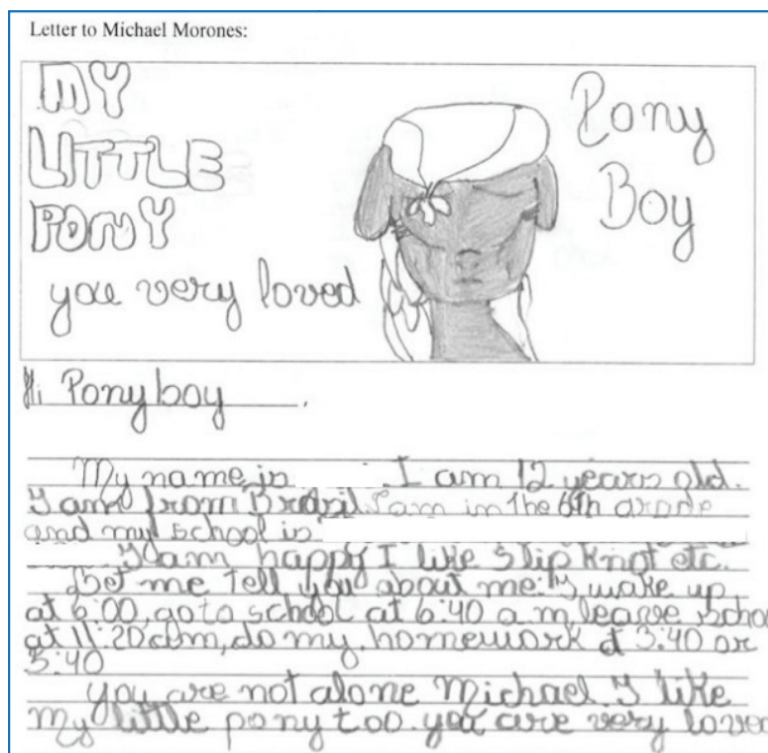 Letter to Michael Morones:
MY
LITTLE
PONY
you very loved
Pony
Boy
Hi Ponyboy.
My name is I am 12 years old.
I am from Brasil. I am in the 6th grade
and my school is
I am happy I like Slipknot etc.
Let me tell you about me: I wake up
at 6:00, go to school at 6:40 a.m, leave schoo
at 11:20 a.m, do my homework at 3:40 or
5:40
you are not alone Michael. I like
my little pony too. you are very loved